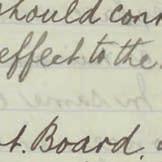 should con
effect to the
t. Board.